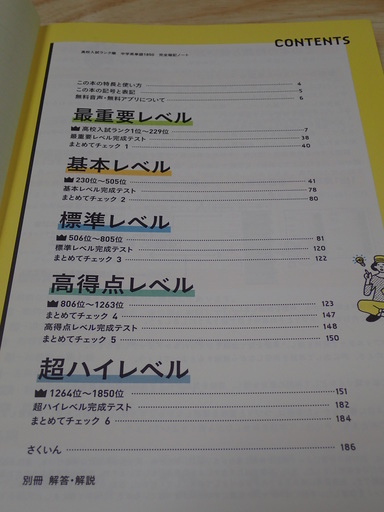 CONTENTS
高校入試ランク順 中学英単語1850 完全暗記ノート
この本の特長と使い方 4
この本の記号と表記 5
無料音声・無料アプリについて 6
最重要レベル
高校入試ランク1位〜229位 7
最重要レベル完成テスト 38
まとめてチェック 1 40
基本レベル
230位〜505位 41
基本レベル完成テスト 78
まとめてチェック 2 80
標準レベル
506位〜805位 81
標準レベル完成テスト 120
まとめてチェック 3 122
高得点レベル
806位〜1263位 123
まとめてチェック 4 147
高得点レベル完成テスト 148
まとめてチェック 5 150
超ハイレベル
1264位〜1850位 151
超ハイレベル完成テスト 182
まとめてチェック 6 184
さくいん 186
別冊 解答・解説